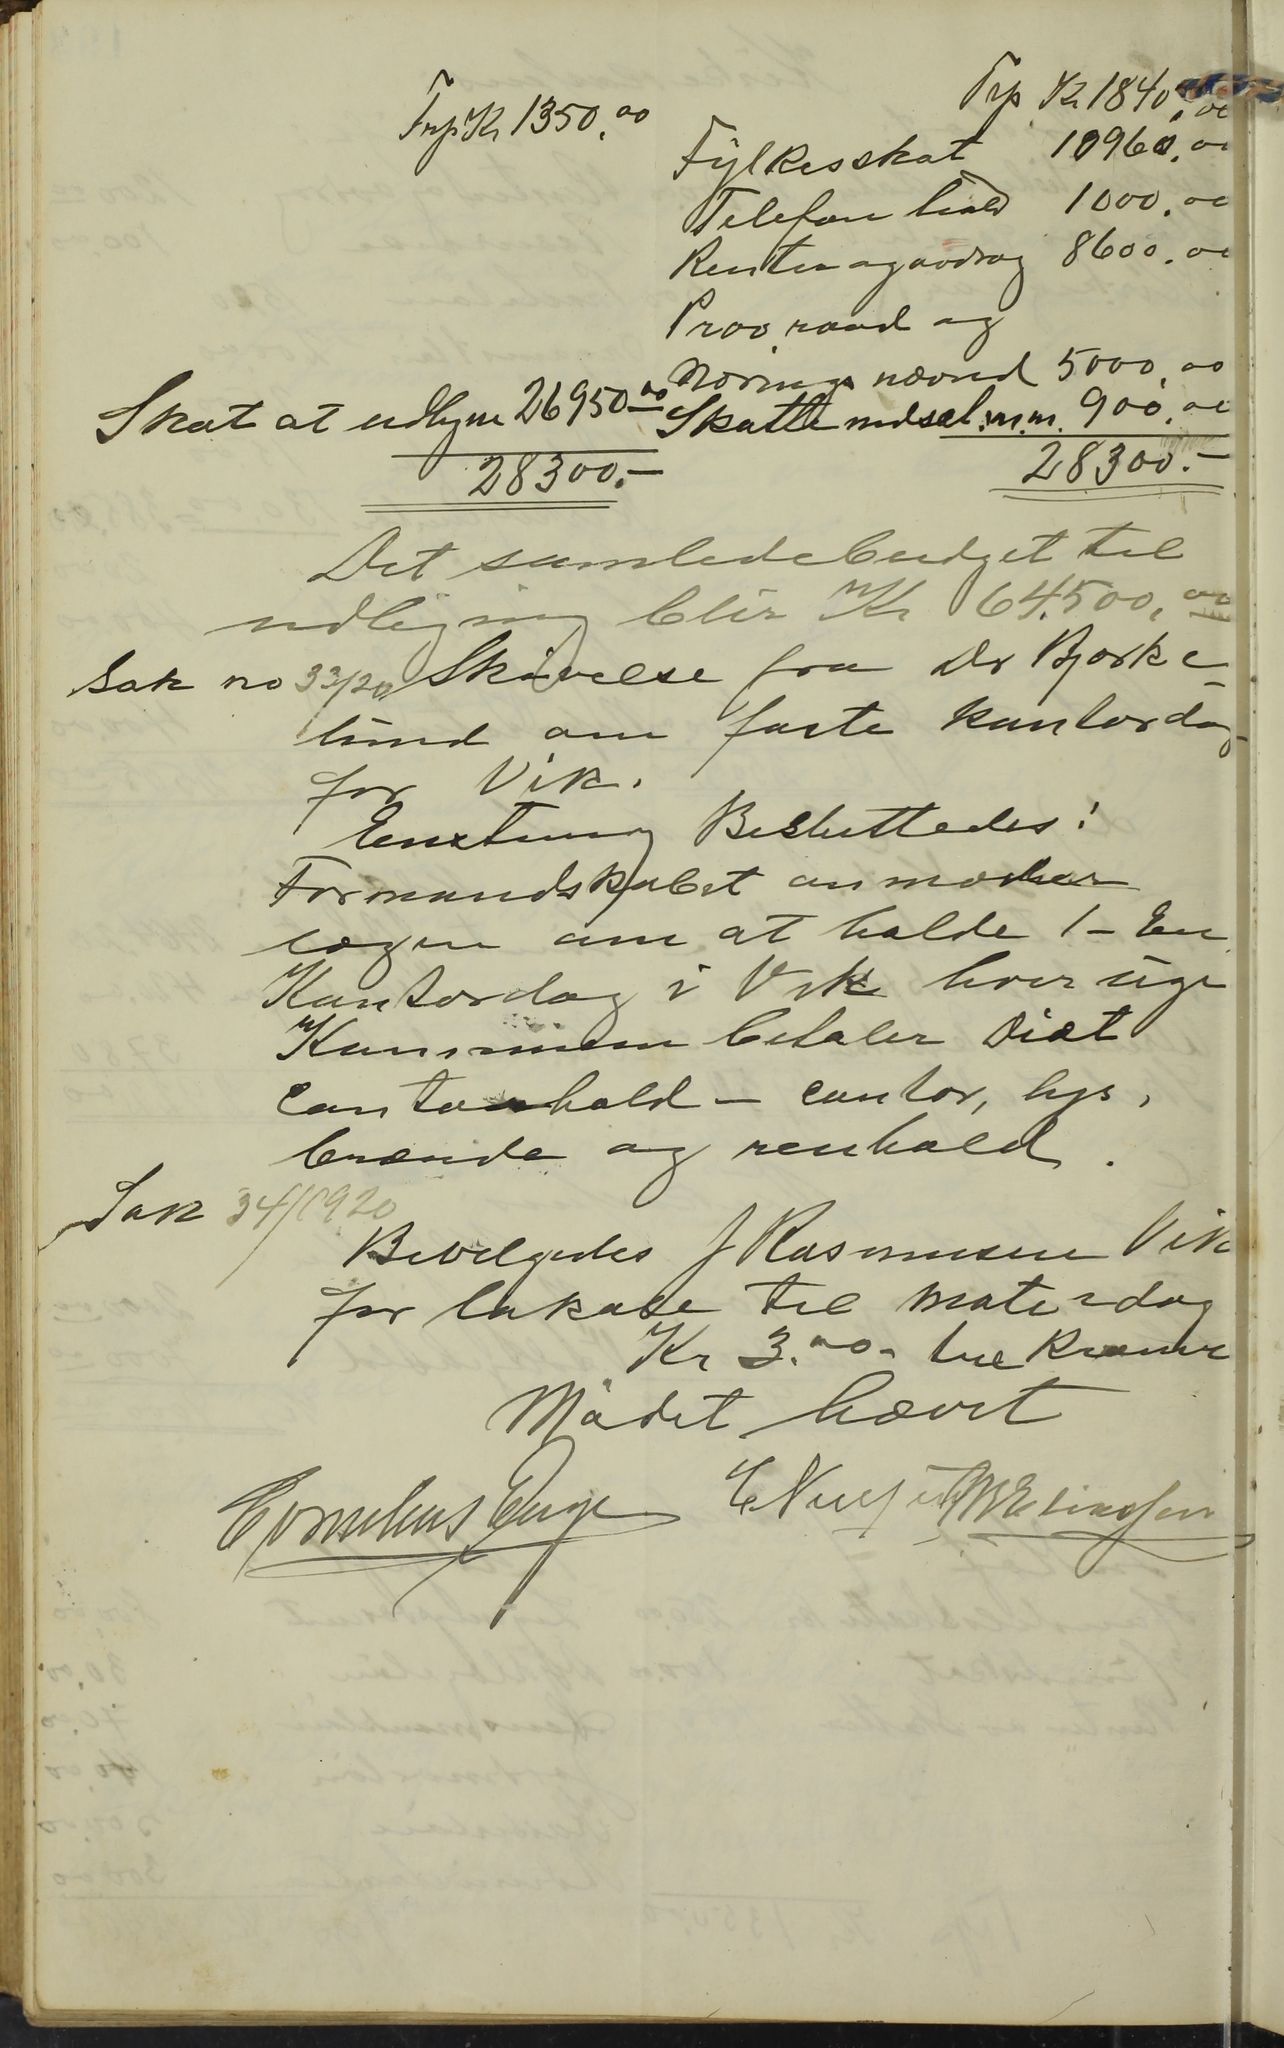 Trp Kr 1350.00
Trp Kr 1840,00
Fylkesskat 10960.00
Telefonhold 1000.00
Renter og avdrag 8600.00
Prov. raad og
Noringsnævnd 5000,00
Skat at udligne 26950.00
Skattenedsæt.m.m. 900.00
28300.-
28300.-
Det samlede budget til
udligning blir Kr 64.500,00
Sak no 33/20 Skrivelse fra Dr Bjørke-
lund om faste kontordag
for Vik.
Enstemig Besluttedes:
Formandskabet anmoder
lægen om at holde 1 - En
Kontordag i Vik hver uge
Kommunen betaler Diæt
Contorhold - contor, lys,
brænde og renhold.
Sak 34/1920
Bevilgedes J Rasmussen Vik
for lokale til møteidag
Kr 3.00 - tre Kroner
Mødet hævet
Cornelius Enge